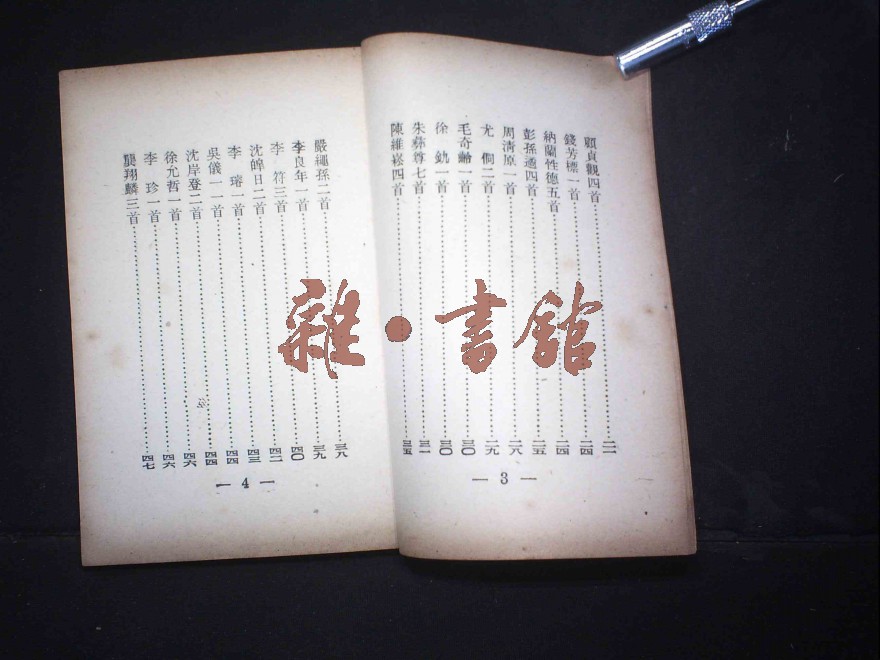 顧貞觀四首……二一
錢芳標一首……二四
納蘭性德五首……二四
彭孫遹四首……二五
周清原一首……二八
尤　侗二首……二九
毛奇齡一首……三〇
徐　釚一首……三〇
朱彝尊七首……三一
陳維崧四首……三五
— 3 —
嚴繩孫二首……三八
李良年一首……三九
李　符三首……四〇
沈皥日二首……四二
李　瑢一首……四三
吳儀一一首……四四
沈岸登二首……四四
徐允哲一首……四六
李　珍一首……四六
龔翔麟三首……四七
— 4 —
雜·書館